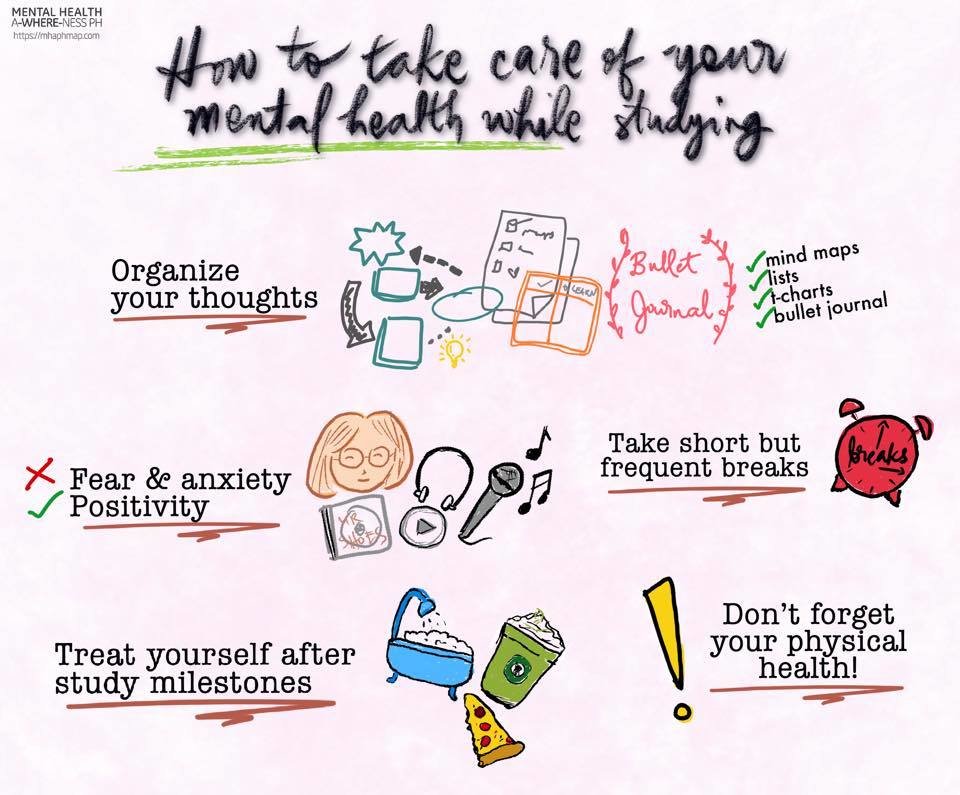 MENTAL HEALTH
A-WHERE-NESS PH
https://mhaphmap.com
How to take care of your
mental health while studying
Organize
your thoughts
LEARN
Bullet
Journal
mind maps
lists
t-charts
bullet journal
Fear & anxiety
Positivity
Take short but
frequent breaks
breaks
Treat yourself after
study milestones
Don't forget
your physical
health!